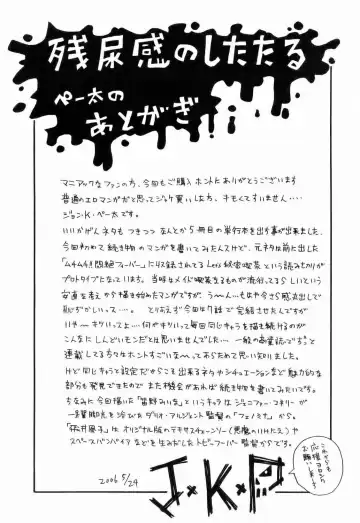 残尿感のしたたる
ペー太の
あとがき
マニアックなファンの方、今回もご購入ホントにありがとうございます
普通のエロマンガだと思ってジャケ買いした方、すもくてすいません・・・・
ジョン・K・ペー太です。
いいかげんネタもつきつつ なんとか5冊目の単行本を出す事が出来ました、
今回初めて続き物のマンガを書いてみたんスけど、元ネタは前に出した
「ムチムチ!!悶絶フィーバー」に収録されてる Let's 秘密喫茶という読みきりが
プロトタイプになっています。当時なメイド喫茶なるものが流行ってるらしいという
安直な考えから描き始めたマンガですが、う〜〜ん・・・もはや今さら感炎出しで
恥ずかしいっス・・・・。とりあえず今回は9話で完結させたんですが
いや〜キツいっスよ・・・何がキツいって毎回同じキャラを描き続けるのが
こんなにしんどいモンだとは思いませんでした・・・一般の商業誌でもっと
連載してる方々はホントすごいな〜っておらためて思い知りました。
けど同じキャラと設定だからこそ出来るネタやシチュエーションなど魅力的な
部分も発見できたのでまた機会があれば続き物を書いてみたいです。
ちなみに今回描いた「菅野みい女」というキャラはジェニファー・コネリーが
一番脚光を浴びたダリオ・アルジェント監督の「フェノミナ」から。
「桜井房子」はオリジナル版のテキサスチェーンソー(悪魔のいけにえ)や
スペースバンパイアなどを生みだしたトビー・フーパー監督からです。
2006 5/29
J×K×P
これからも
応援ヨロシク
お願いします